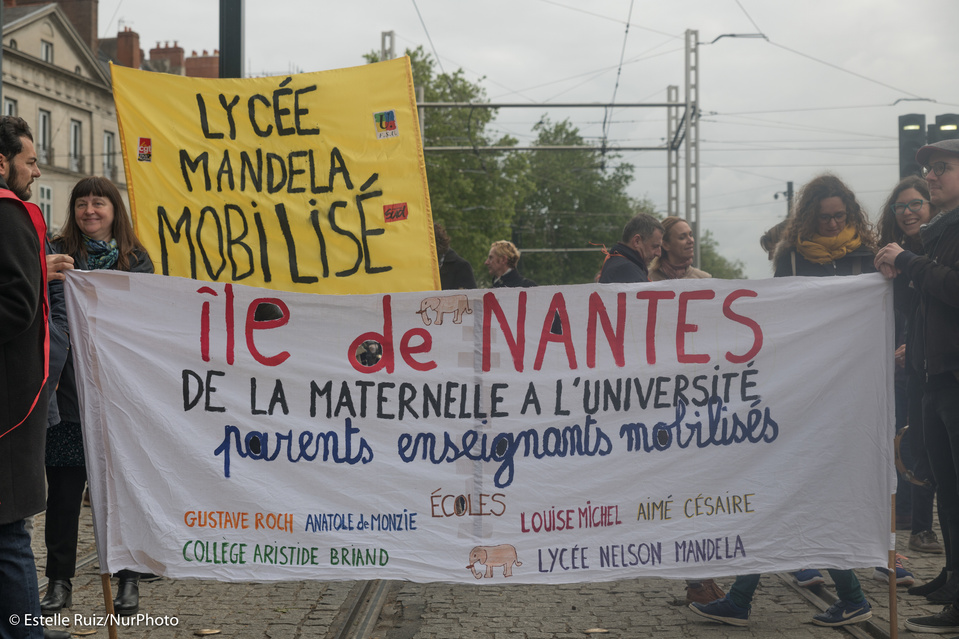 LYCÉE
MANDELA
MOBILISÉ
cgt
île de NANTES
DE LA MATERNELLE A L'UNIVERSITÉ
parents enseignants mobilisés
ÉCOLES
GUSTAVE ROCH ANATOLE de MONZIE LOUISE MICHEL AIMÉ CÉSAIRE
COLLEGE ARISTIDE BRIAND LYCÉE NELSON MANDELA
© Estelle Ruiz/NurPhoto